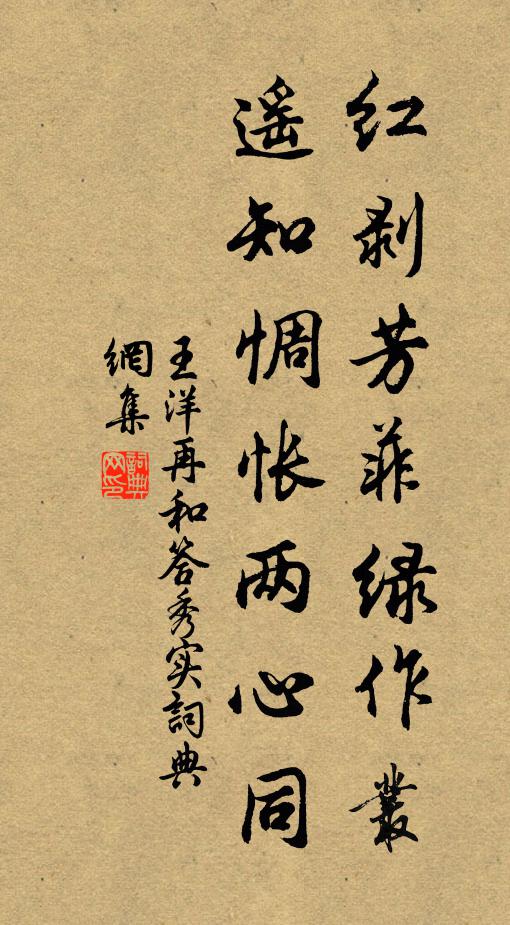 红剥芳菲绿作叢
遥知惆怅两心同
王洋再和答秀实詞典
網集
詞典网印